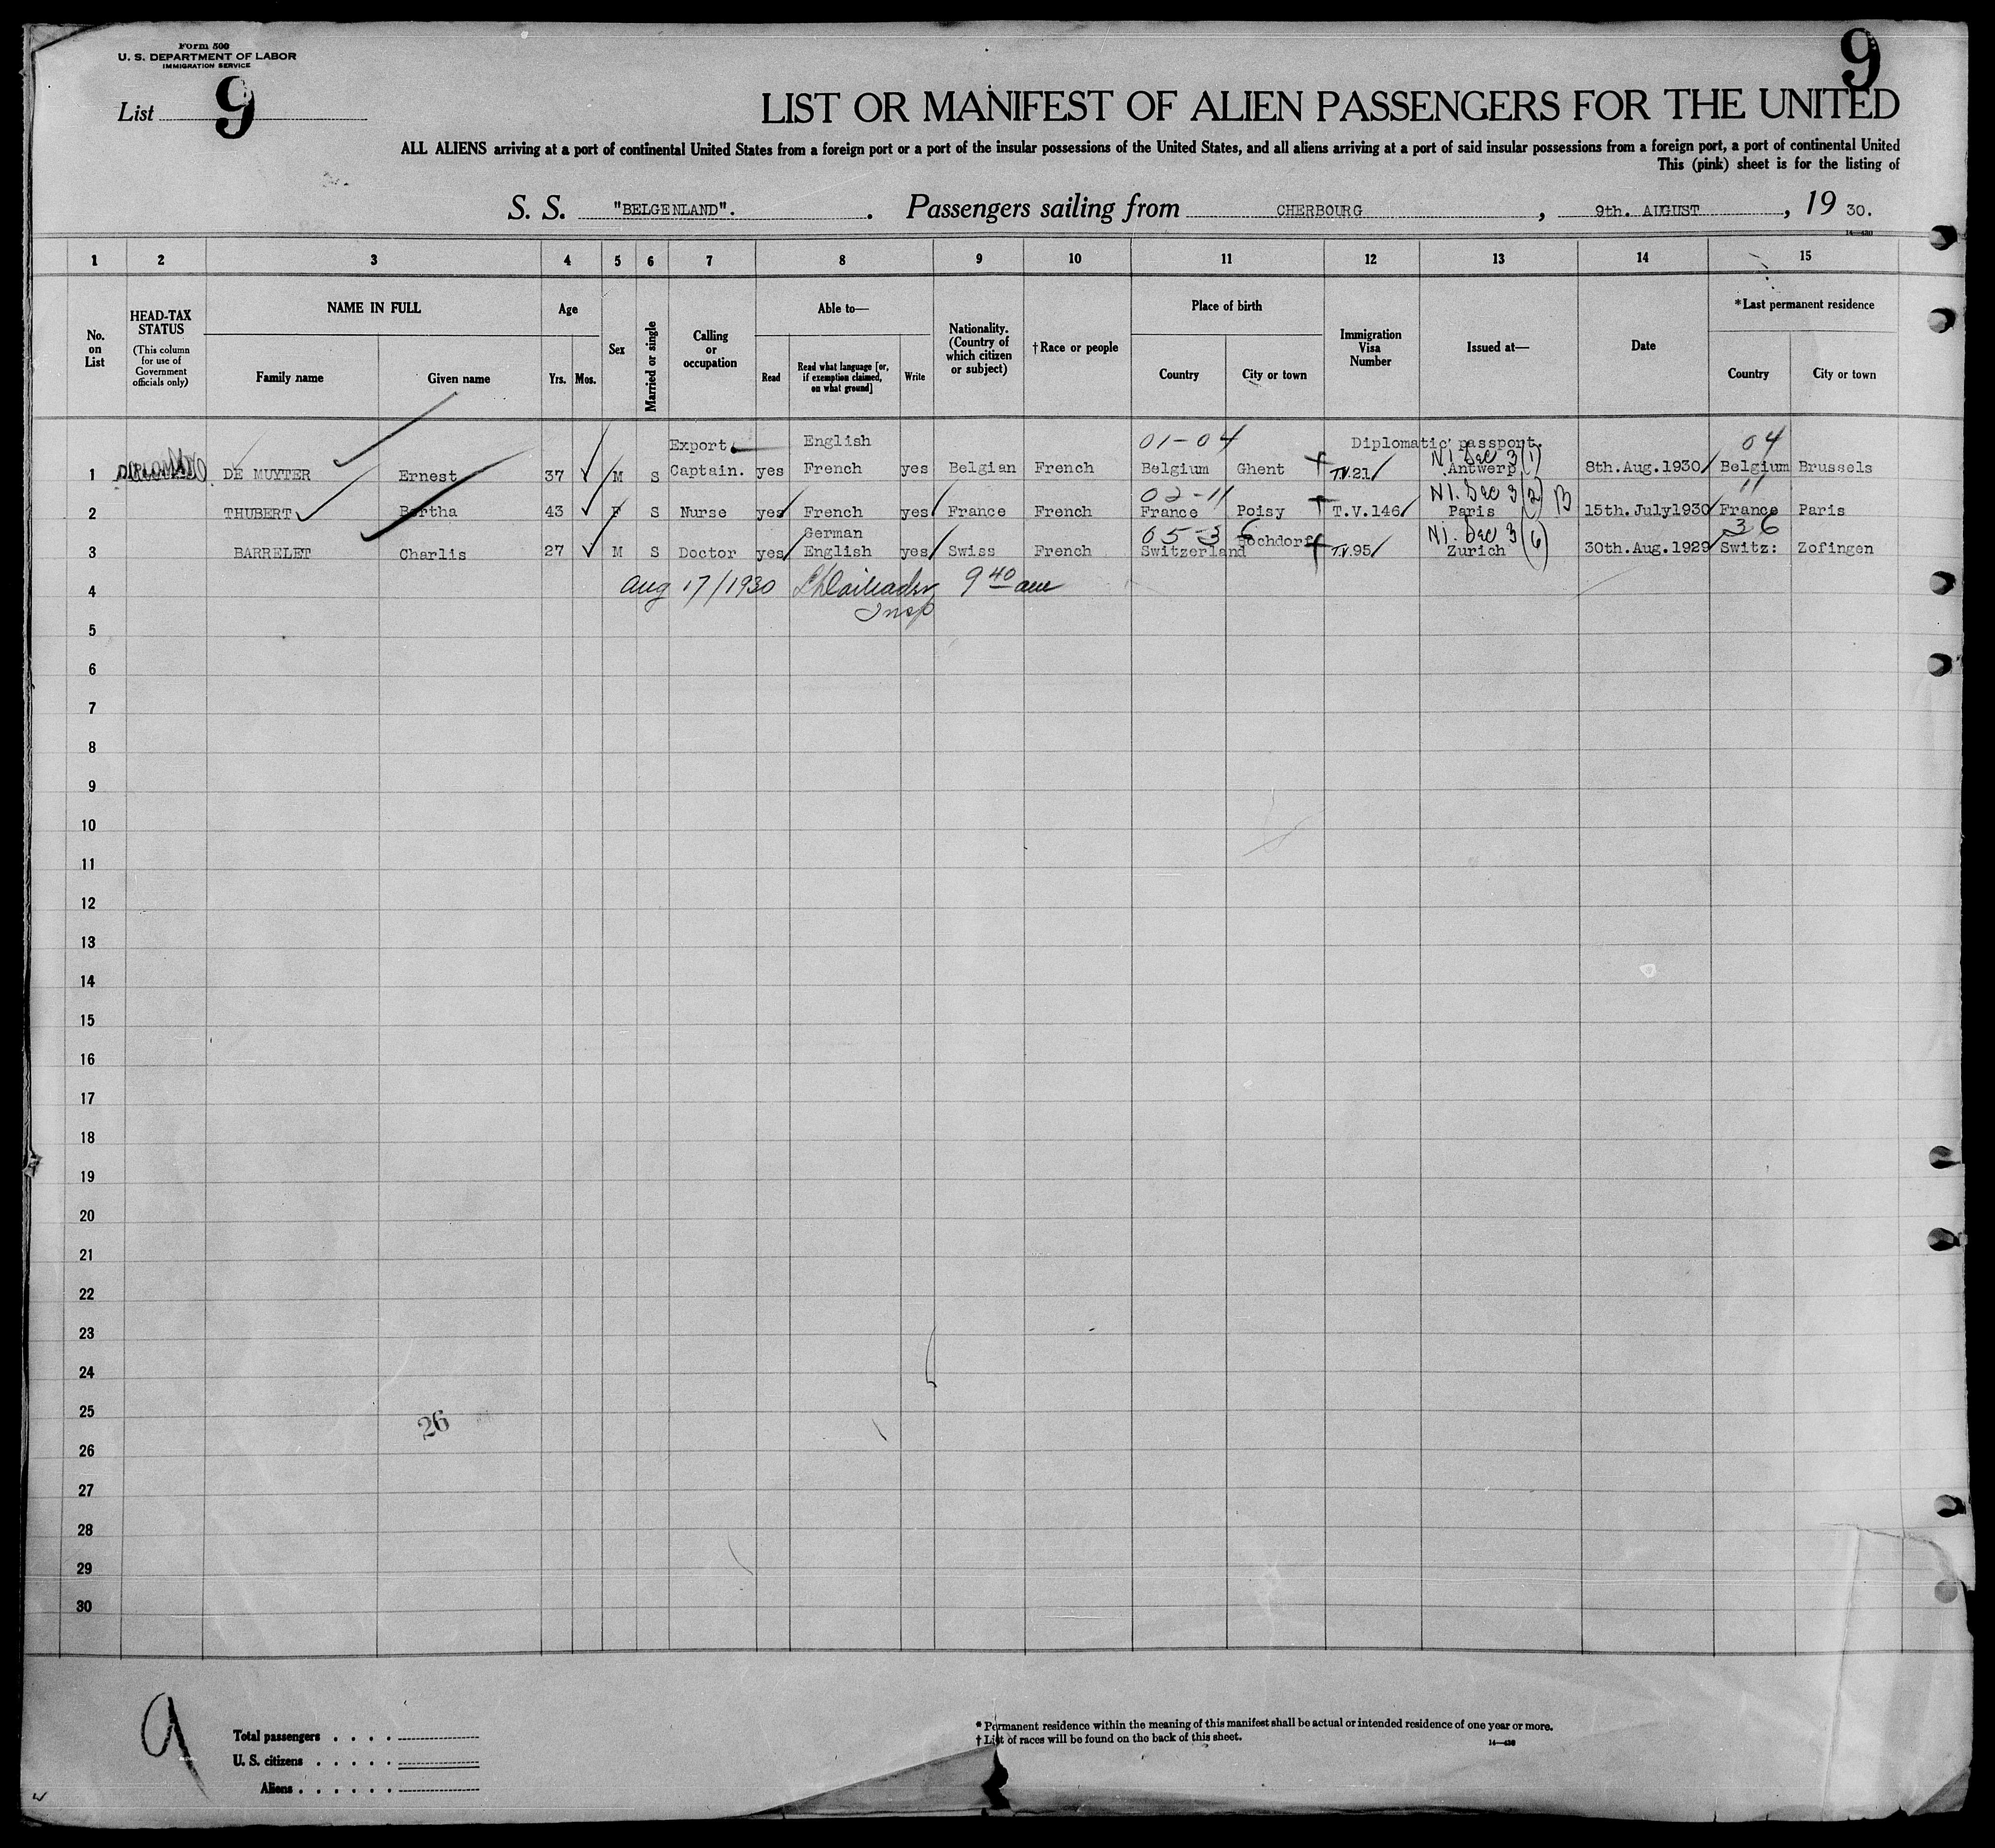 Form 500
U. S. DEPARTMENT OF LABOR
IMMIGRATION SERVICE
List 9
9
LIST OR MANIFEST OF ALIEN PASSENGERS FOR THE UNITED
ALL ALIENS arriving at a port of continental United States from a foreign port or a port of the insular possessions of the United States, and all aliens arriving at a port of said insular possessions from a foreign port, a port of continental United
This (pink) sheet is for the listing of
S. S. "BELGENLAND". . Passengers sailing from CHERBOURG , 9th. AUGUST , 19 30.
14—430
1 2 3 4 5 6 7 8 9 10 11 12 13 14 15
No. on List
HEAD-TAX STATUS
(This column for use of Government officials only)
NAME IN FULL
Family name
Given name
Age
Yrs. Mos.
Sex
Married or single
Calling or occupation
Able to—
Read
Read what language [or, if exemption claimed, on what ground]
Write
Nationality. (Country of which citizen or subject)
†Race or people
Place of birth
Country
City or town
Immigration Visa Number
Issued at—
Date
*Last permanent residence
Country
City or town
Export. English 01-04 Diplomatic passport. 04
NI Sec 3(1)
1 DIPLOMAT DE MUYTER Ernest 37 M S Captain. yes French yes Belgian French Belgium Ghent T.V.21 Antwerp 8th.Aug.1930 Belgium Brussels
02-11 NI. Sec 3(2) B 11
2 THUBERT Bertha 43 F S Nurse yes French yes France French France Poisy T.V.146 Paris 15th.July1930 France Paris
German 05-36 NI. Sec 3(6) 36
3 BARRELET Charlis 27 M S Doctor yes English yes Swiss French Switzerland Hochdorf T.V.95 Zurich 30th.Aug.1929 Switz: Zofingen
4 Aug 17/1930 9 40 am
Insp
5
6
7
8
9
10
11
12
13
14
15
16
17
18
19
20
21
22
23
24
25
26
26
27
28
29
30
9
Total passengers . . . .
U. S. citizens . . . . .
Aliens . . . . . .
* Permanent residence within the meaning of this manifest shall be actual or intended residence of one year or more.
† List of races will be found on the back of this sheet.
14—430